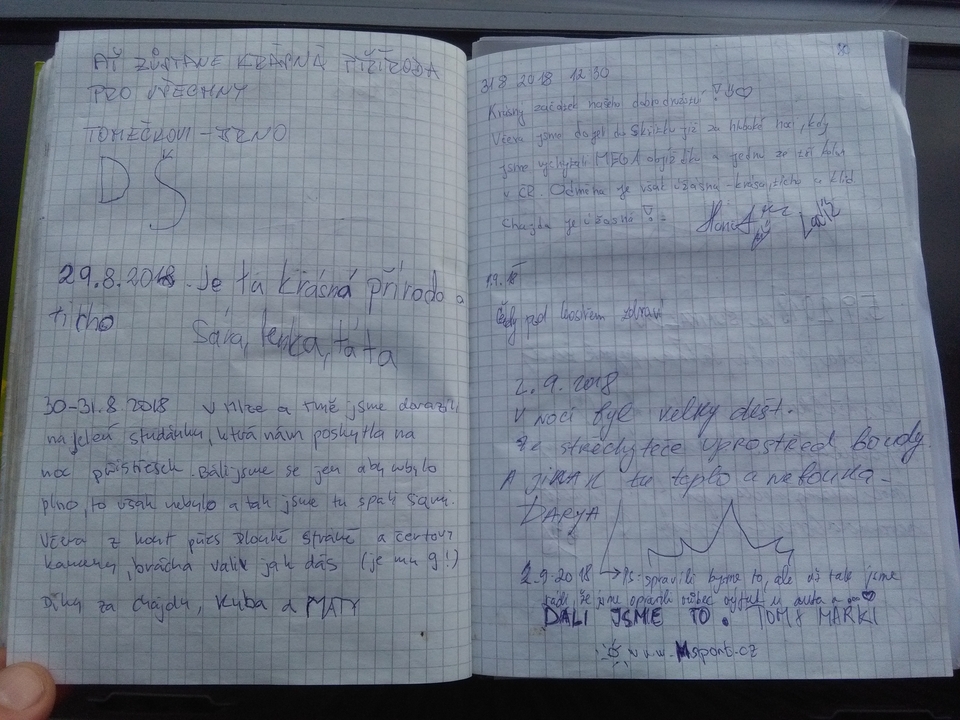 AŤ ZŮSTANE KRÁSNÁ PŘÍRODA
PRO VŠECHNY
TOMEČKOVI - BRNO
D
29.8.2018. Je tu krásná příroda a
ticho
Sára, Lenka, táta
30-31.8 2018 V mlze a tmě jsme dorazili
na jelení studánku, která nám poskytla na
noc přístřešek. Báli jsme se jen aby nebylo
plno, to však nebylo a tak jsme tu spali sami.
Včera z hout přes Dlouhé Stráně a čertovi
kameny, brácha valil jak dáš (je mu 9!)
Díky za chajdu, Kuba a MATY
31 8 2018 12 30
Krásný začátek našeho dobrodružství
Včera jsme dojeli do Skřítku již za hluboké noci, kdy
jsme vychytali MEGA objížďku a jednu ze tří kolon
v ČR. Odměna je však úžasná - krása, ticho a klid
Chajda je úžasná
1.9. 18
pod kostrem zdraví
2.9.2018
V noci byl velký déšť.
Ze střechy teče uprostřed boudy
A JINAK tu teplo a nefouká -
DARYA
2.9.2018 → Ps: spravili bysme to, ale už tak jsme
rádi, že sme opravili vůbec výfuk u auta a
DALI JSME TO. TOM & MARKI
www.Msport.cz